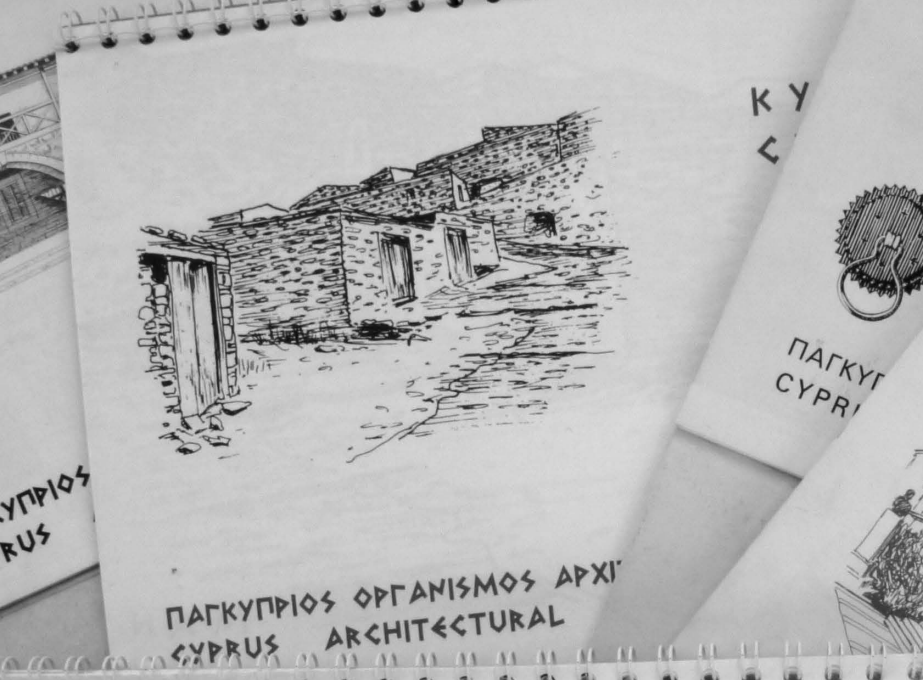 ΚΥ
C
ΠΑΓΚΥΠ
CYPRU
ΚΥΠΡΙΟΣ
RUS
ΠΑΓΚΥΠΡΙΟΣ ΟΡΓΑΝΙΣΜΟΣ ΑΡΧΙ
CYPRUS ARCHITECTURAL